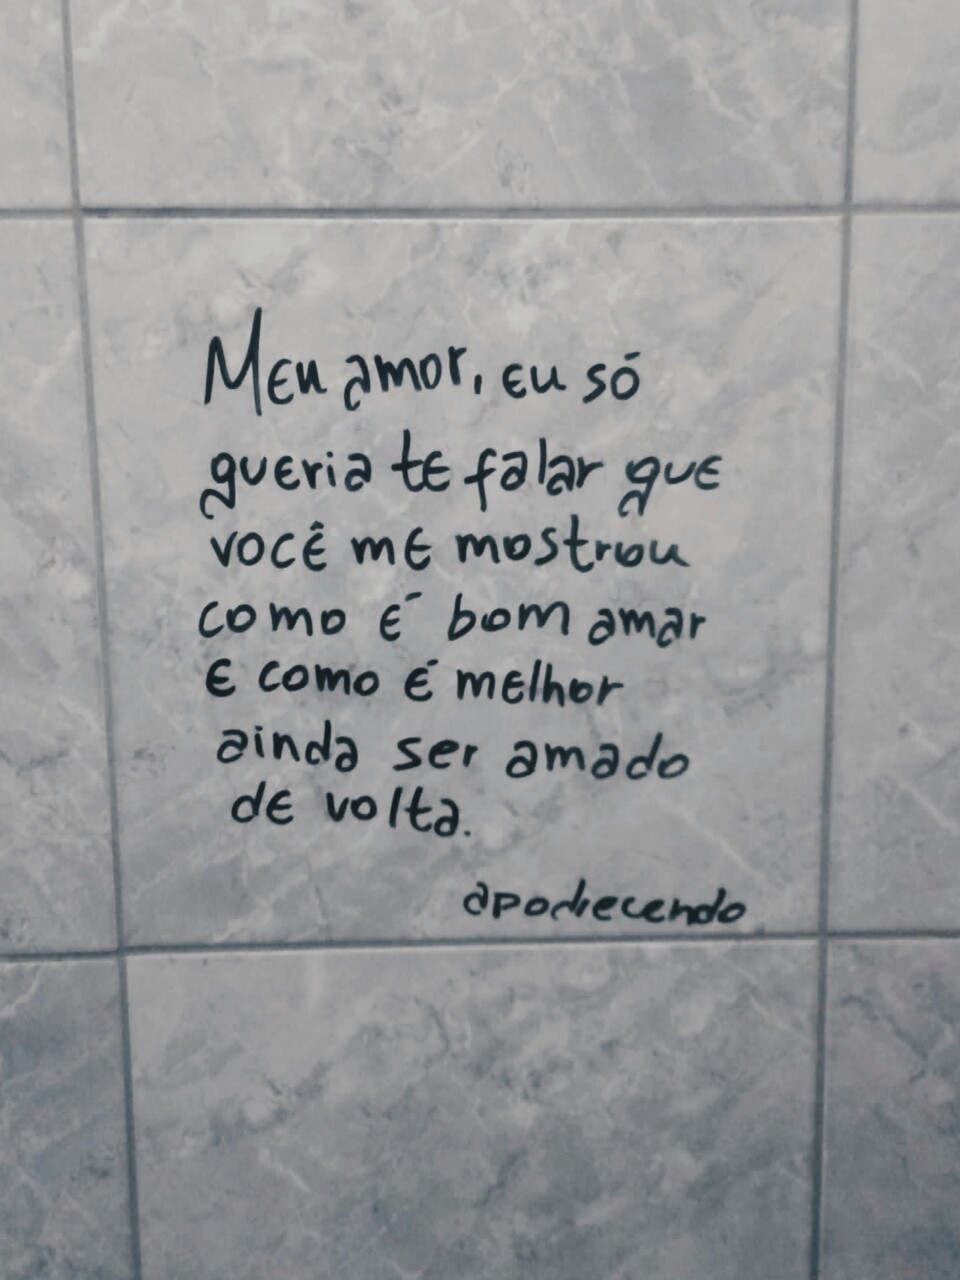 Meu amor, eu só
queria te falar que
você me mostrou
como é bom amar
e como é melhor
ainda ser amado
de volta.
apodrecendo